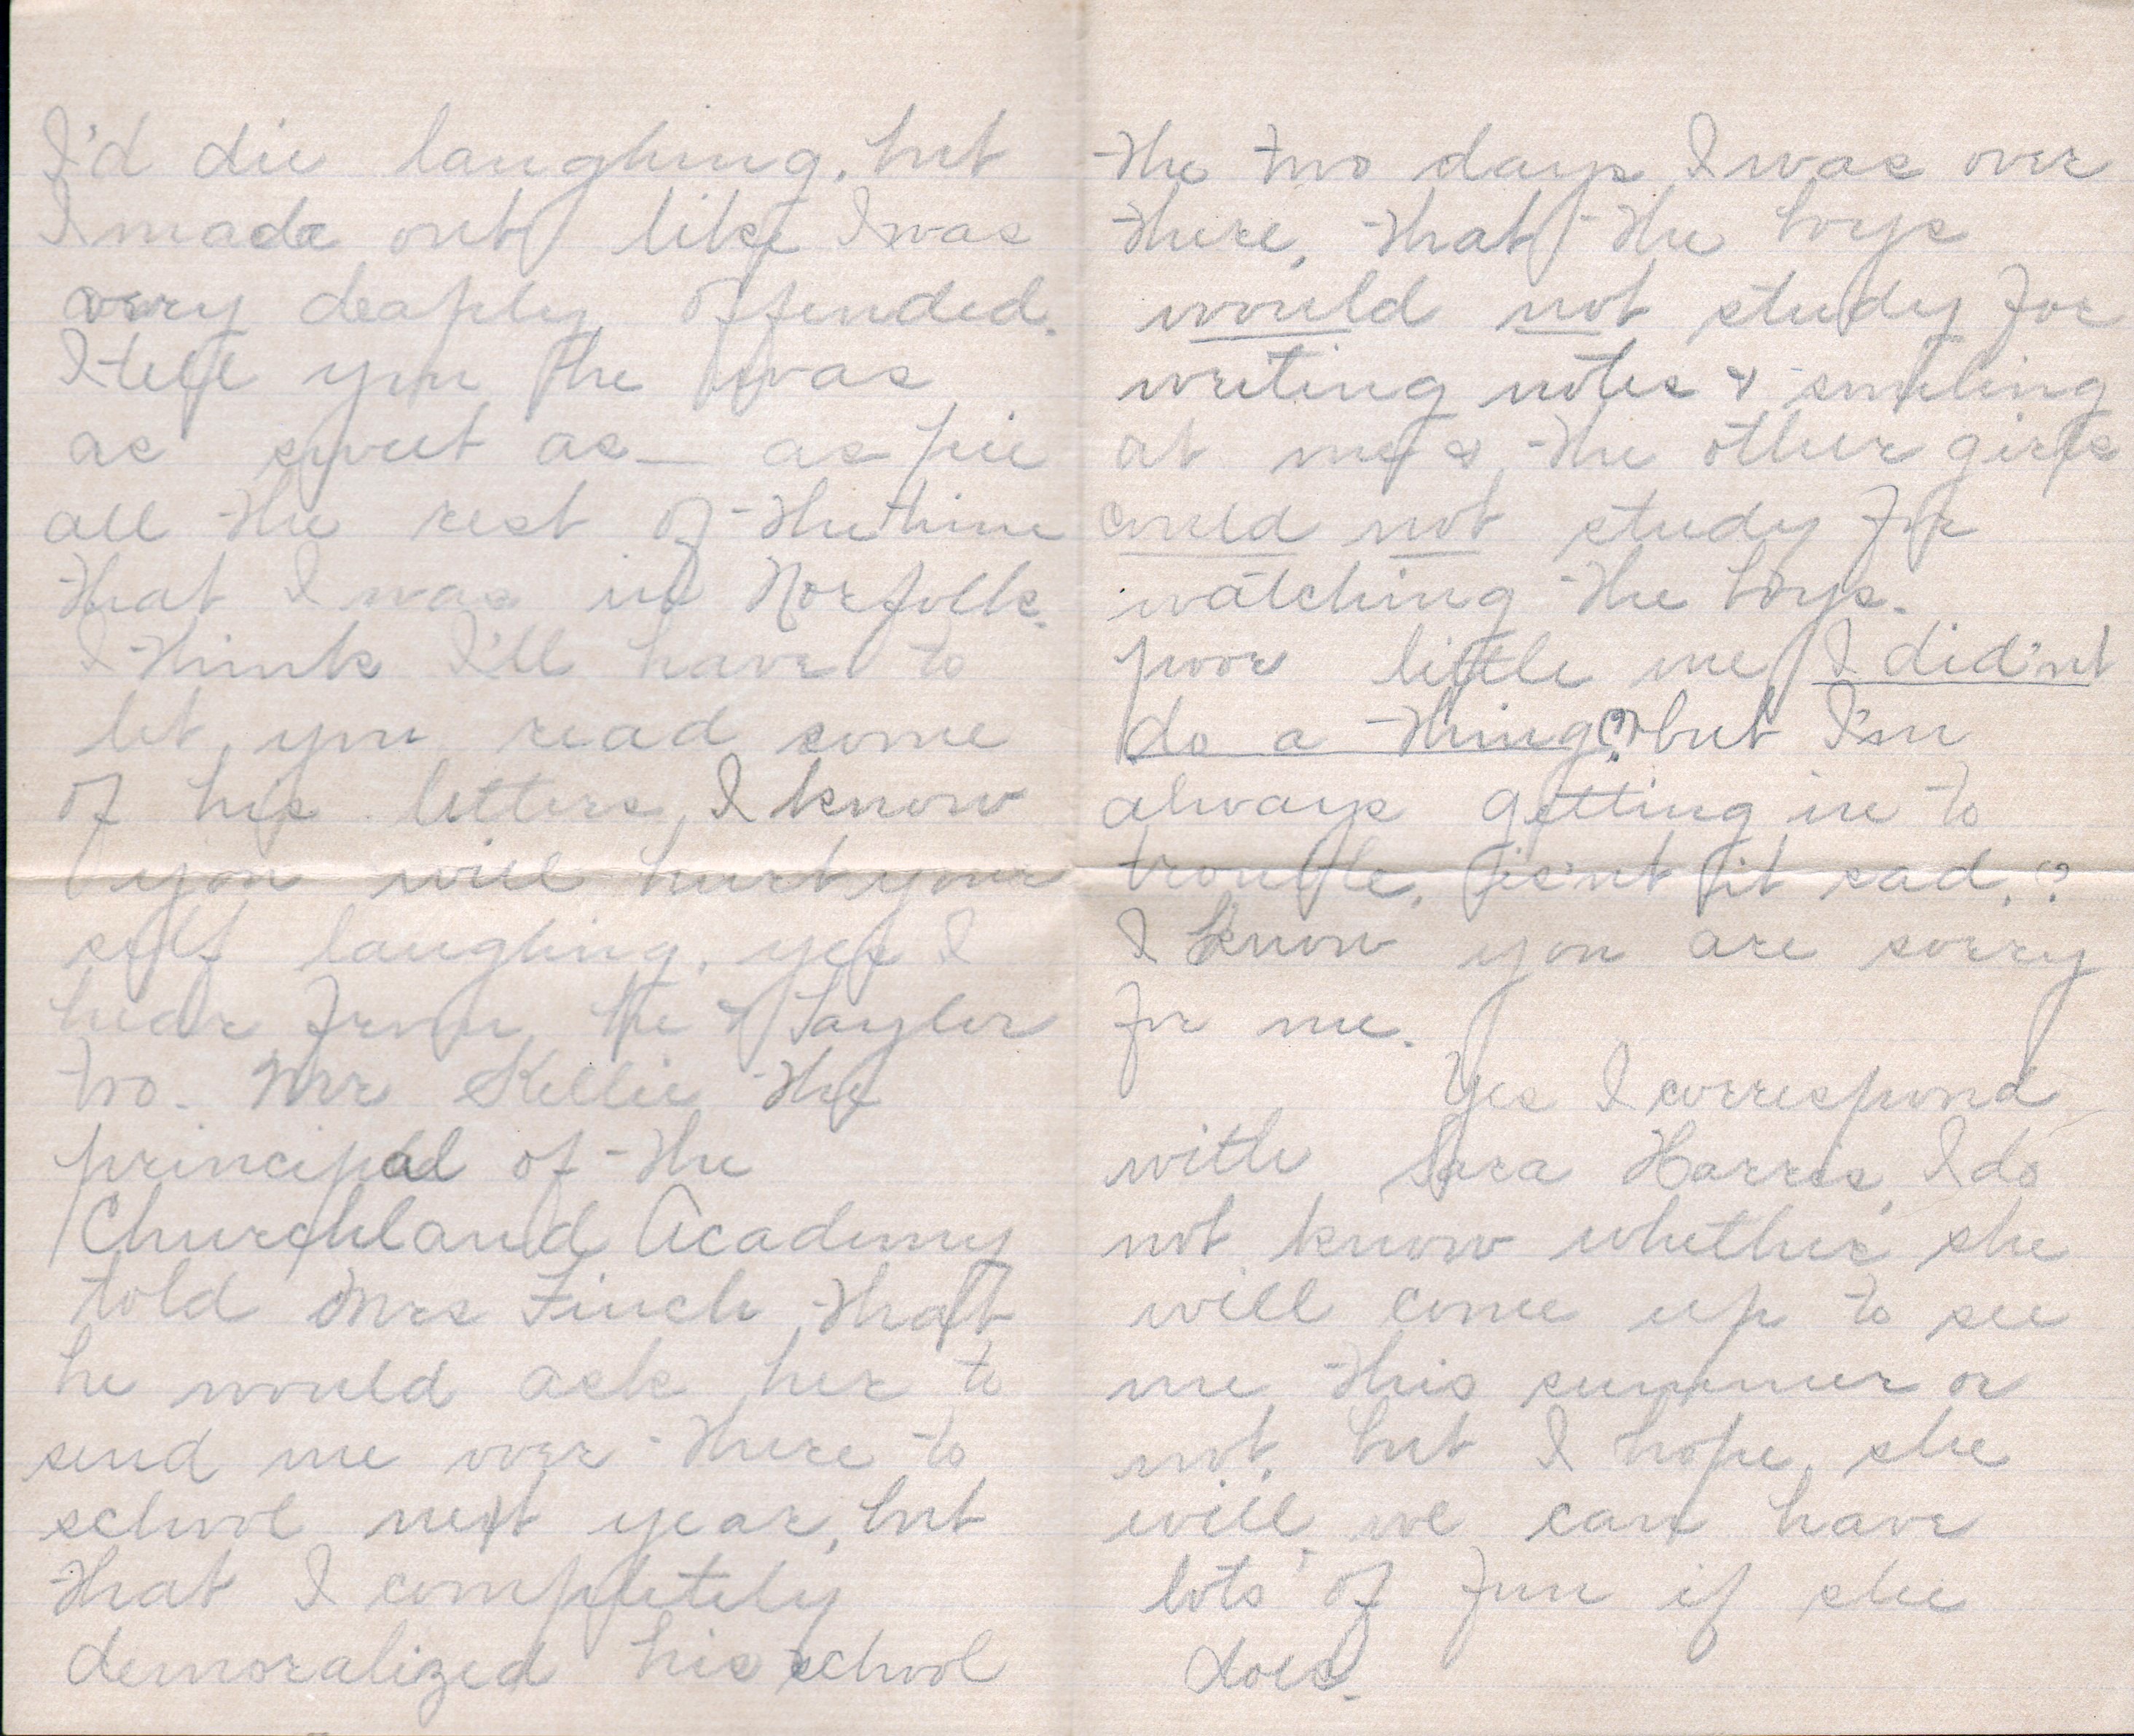 I'd die laughing, but
I made out like I was
very deaply offended.
I tell you he was
as sweet as — as pie
all the rest of the time
that I was in Norfolk.
I think I'll have to
let you read some
of his letters, I know
you will hurt your
self laughing. yes I
hear from he & Taylor
two. Mr Kellie the
principal of the
Churchland Academy
told Mrs Finch that
he would ask her to
send me over there to
school next year, but
that I completely
demoralized his school
the two days I was over
there, that the boys
would not study for
writing notes & smiling
at me & the other girls
could not study for
watching the boys.
poor little me I did'nt
do a thing(?) but I'm
always getting in to
trouble, is'nt it sad.?
I know you are sorry
for me.
Yes I correspond
with Sara Harris, I do
not know whether she
will come up to see
me this summer or
not, but I hope she
will, we can have
lots of fun if she
does.